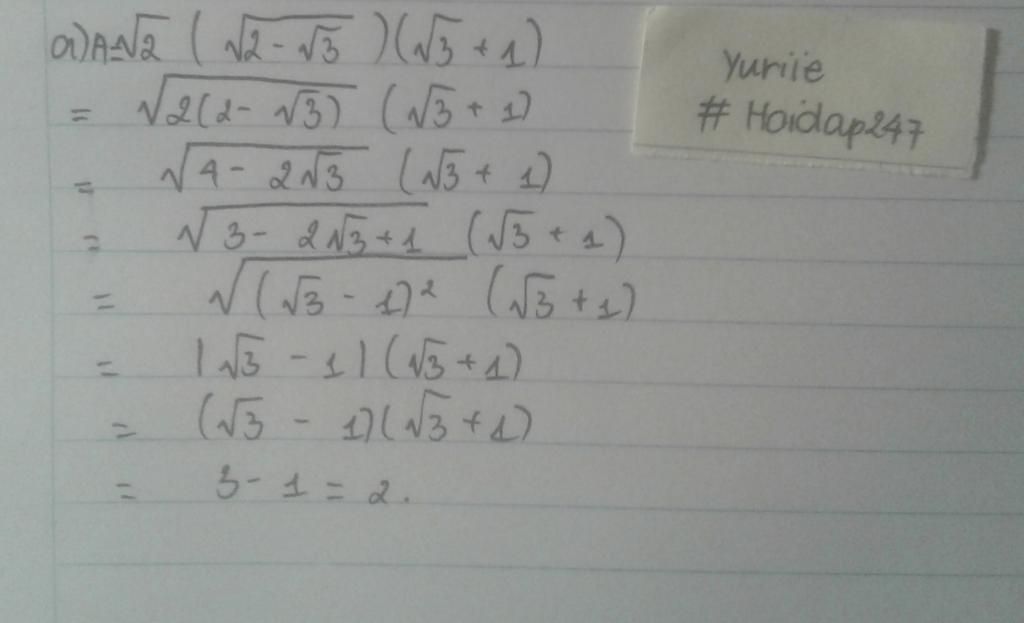 a) A=√2 ( √(2-√3) )(√3 + 1)
= √(2(2-√3)) (√3 + 1)
= √(4 - 2√3) (√3 + 1)
= √(3 - 2√3 + 1) (√3 + 1)
= √((√3 - 1)²) (√3 + 1)
= |√3 - 1| (√3 + 1)
= (√3 - 1)(√3 + 1)
= 3 - 1 = 2.
Yuriie
# Hoidap247